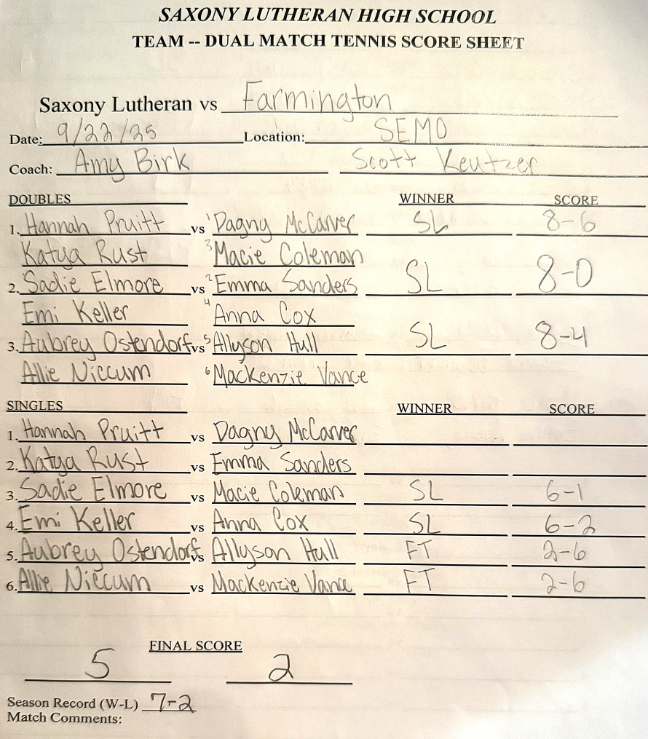 SAXONY LUTHERAN HIGH SCHOOL
TEAM -- DUAL MATCH TENNIS SCORE SHEET
Saxony Lutheran vs Farmington
Date: 9/22/25 Location: SEMO
Coach: Amy Birk Scott Keutzer
DOUBLES WINNER SCORE
1. Hannah Pruitt vs 1 Dagny McCarver SL 8-6
Katya Rust 3 Macie Coleman
2. Sadie Elmore vs 2 Emma Sanders SL 8-0
Emi Keller 4 Anna Cox
3. Aubrey Ostendorf vs 5 Allyson Hull SL 8-4
Allie Niccum 6 Mackenzie Vance
SINGLES WINNER SCORE
1. Hannah Pruitt vs Dagny McCarver
2. Katya Rust vs Emma Sanders
3. Sadie Elmore vs Macie Coleman SL 6-1
4. Emi Keller vs Anna Cox SL 6-2
5. Aubrey Ostendorf vs Allyson Hull FT 2-6
6. Allie Niccum vs Mackenzie Vance FT 2-6
FINAL SCORE
5 2
Season Record (W-L) 7-2
Match Comments: